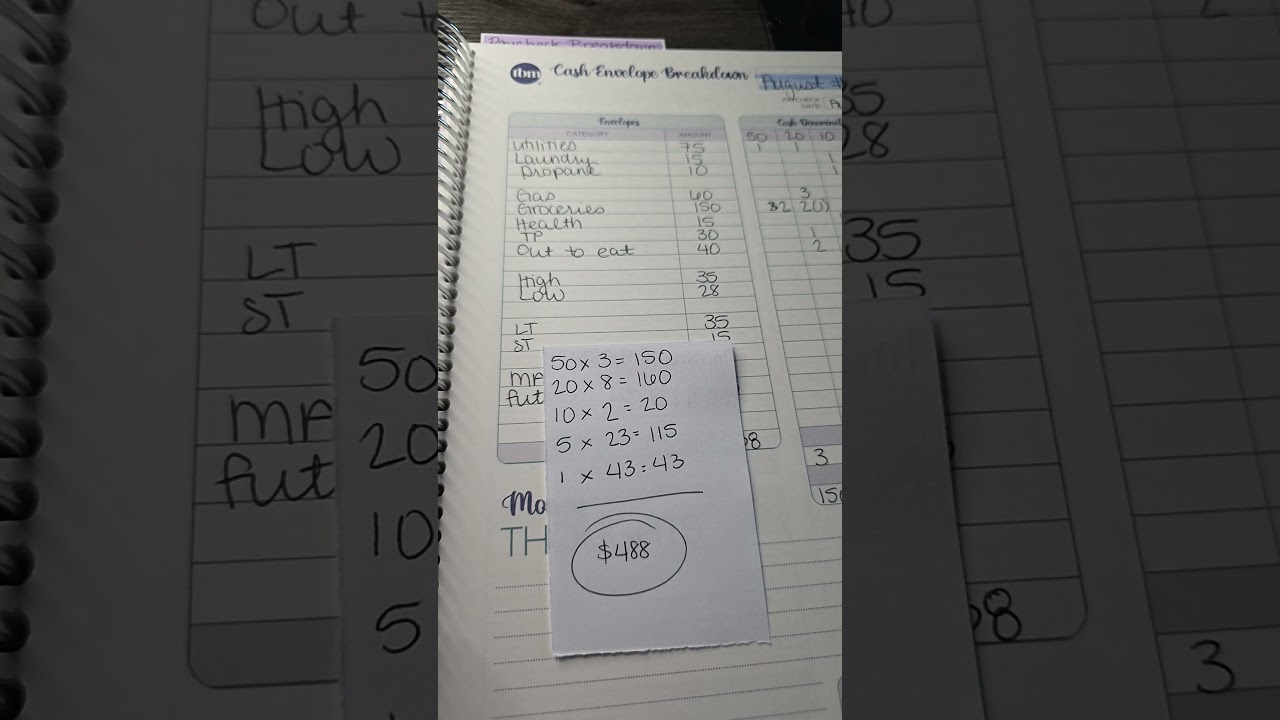 Paycheck Breakdown
tbm Cash Envelope Breakdown August
Envelopes
CATEGORY AMOUNT
Utilities 75
Laundry 15
Propane 10
Gas 60
Groceries 150
Health 15
TP 30
Out to eat 40
High 35
Low 28
LT 35
ST 15
MF
fut
8
50 20 10
1 1
1
1
3
2 2(1)
1
2
3
150
50 x 3 = 150
20 x 8 = 160
10 x 2 = 20
5 x 23 = 115
1 x 43 = 43
$488
Mo
TH
Out t
High
Low
LT
ST
MF
fut
50
20
10
5
35
28
35
15
8
3